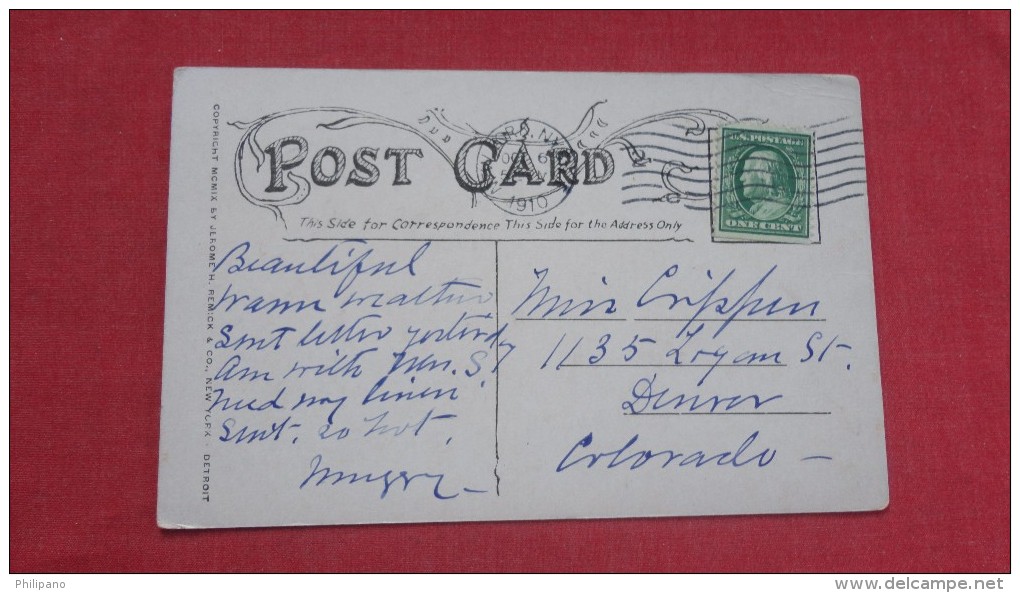 POST CARD
This Side for Correspondence This Side for the Address Only
COPYRIGHT MCMIX BY JEROME H. REMICK & CO., NEW YORK - DETROIT
1910
U.S. POSTAGE
ONE CENT
Beautiful
warm weather
Sent letter yesterday
Am with Mrs. S.
need my linen
Suit. so hot.
Miss Crippen
1135 Logan St.
Denver
Colorado –
Philipano
www.delcampe.net